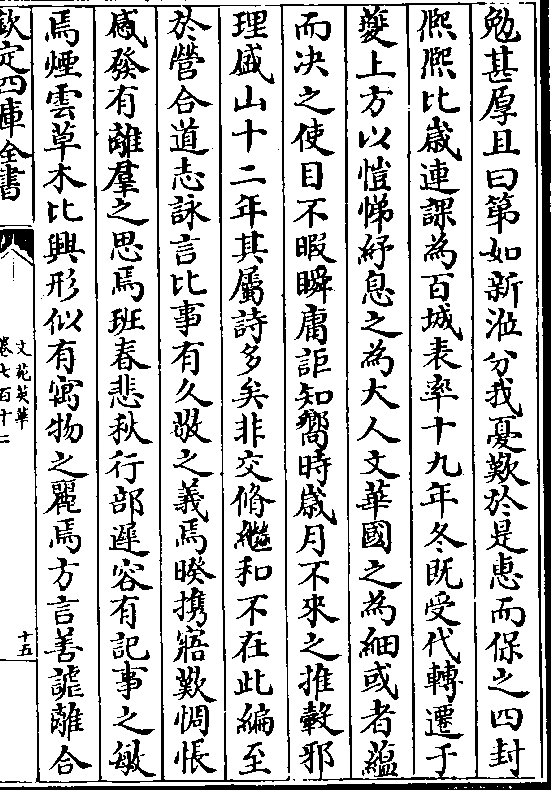 勉甚厚且曰第如新涖分我憂歎於是惠而保之四封
熈熈比歳連課為百城表率十九年冬既受代轉遷于
夔上方以愷悌紓息之為大人文華國之為細或者蘊
而决之使目不暇瞬庸詎知嚮時歳月不來之推轂邪
理戚山十二年其屬詩多矣非交脩繼和不在此編至
於營合道志詠言比事有久敬之義焉暌携寤歎惆悵
感發有離羣之思焉班春悲秋行部遲容有記事之敏
焉煙雲草木比興形似有寓物之麗焉方言善謔離合
欽定四庫全書
文苑英華
卷七百十二
十五